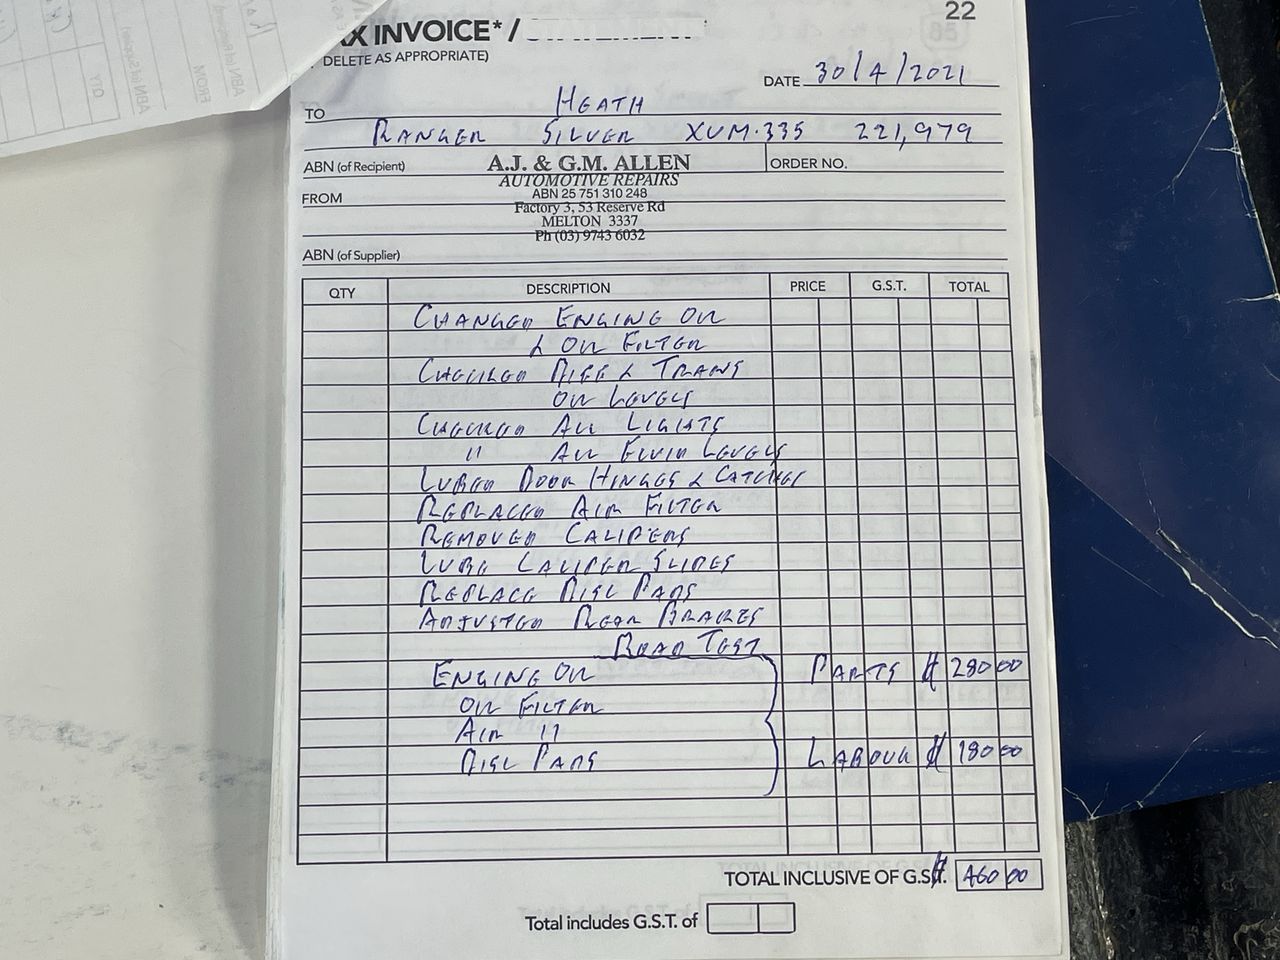 22
AX INVOICE* /
DELETE AS APPROPRIATE)
DATE 30/4/2021
TO HEATH
RANGER SILVER XUM·335 221,979
ABN (of Recipient) A.J. & G.M. ALLEN ORDER NO.
AUTOMOTIVE REPAIRS
FROM ABN 25 751 310 248
Factory 3, 53 Reserve Rd
MELTON 3337
Ph (03) 9743 6032
ABN (of Supplier)
QTY DESCRIPTION PRICE G.S.T. TOTAL
CHANGED ENGINE OIL
& OIL FILTER
CHECKED DIFF & TRANS
OIL LEVELS
CHECKED ALL LIGHTS
" ALL FLUID LEVELS
LUBED DOOR HINGES & CATCHES
REPLACED AIR FILTER
REMOVED CALIPERS
LUBE CALIPER SLIDES
REPLACE DISC PADS
ADJUSTED REAR BRAKES
ROAD TEST
ENGINE OIL PARTS $ 280 00
OIL FILTER
AIR "
DISC PADS LABOUR $ 180 00
TOTAL INCLUSIVE OF G.S.T. $ 460 00
Total includes G.S.T. of